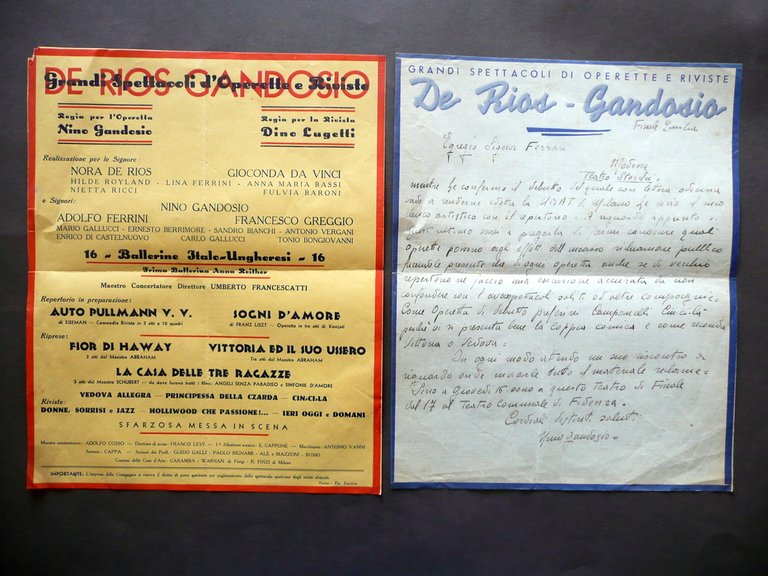 DE RIOS GANDOSIO
Grandi Spettacoli d'Operette e Riviste
Regia per l'Operetta
Nino Gandosio
Regia per la Rivista
Dino Lugetti
Realizzazione per le Signore:
NORA DE RIOS GIOCONDA DA VINCI
HILDE ROYLAND - LINA FERRINI - ANNA MARIA BASSI
NIETTA RICCI FULVIA BARONI
e Signori:
NINO GANDOSIO
ADOLFO FERRINI FRANCESCO GREGGIO
MARIO GALLUCCI - ERNESTO BERRIMORE - SANDRO BIANCHI - ANTONIO VERGANI
ENRICO DI CASTELNUOVO CARLO GALLUCCI TONIO BONGIOVANNI
16 - Ballerine Italo-Ungheresi - 16
Prima Ballerina Anna Reither
Maestro Concertatore Direttore UMBERTO FRANCESCATTI
Repertorio in preparazione:
AUTO PULLMANN V. V. SOGNI D'AMORE
di EISEMAN - Commedia Rivista in 3 atti e 10 quadri di FRANZ LISZT - Operetta in tre atti di Konjati
Riprese:
FIOR DI HAWAY VITTORIA ED IL SUO USSERO
3 atti del Maestro ABRAHAM Tre atti del Maestro ABRAHAM
LA CASA DELLE TRE RAGAZZE
3 atti del Maestro SCHUBERT - da dove furono tratti i films: ANGELI SENZA PARADISO e SINFONIE D'AMORE
VEDOVA ALLEGRA - PRINCIPESSA DELLA CZARDA - CIN-CI-LA
Riviste:
DONNE, SORRISI e JAZZ - HOLLIWOOD CHE PASSIONE!... - IERI OGGI e DOMANI
SFARZOSA MESSA IN SCENA
Maestro rammentatore: ADOLFO COSSO - Direttore di scena: FRANCO LEVI - 1.° Allestitore scenico: E. CAPPONE - Macchinista: ANTONIO VANNI
Sartoria: CAPPA - Scenari dei Proff. GUIDO GALLI - PAOLO BIGNAMI - ALE e MAZZONI - BOSIO
Costumi della Casa d'Arte: CARAMBA - WARNAN di Parigi - B. FINZI di Milano
IMPORTANTE: L'impresa della Compagnia si riserva il diritto di poter sostituire per miglioramento dello spettacolo qualcuno degli artisti elencati.
GRANDI SPETTACOLI DI OPERETTE E RIVISTE
De Rios - Gandosio
Finale Emilia
Egregio Signor Ferrari
Modena
Teatro Storchi
mentre le confermo il debutto del quale con lettera odierna
elenco artistico con il repertorio. A riguardo appunto di
quest'ultimo sarei a pregarla di farmi conoscere quali
operette possono agli effetti del incasso richiamare pubblico
facendole presente che di ogni operetta anche se di vecchio
repertorio ne faccio una esecuzione accurata da non
confondere con
Come Operetta di debutto preferirei Campanelli Cin-ci-là
poichè vi si presenta bene la coppia comica e come seconda
Vittoria o Vedova
In ogni modo attendo un suo riscontro a
riguardo onde inviarle tutto il materiale reclame
Sino a Giovedì 16 sono a questo Teatro di Finale
dal 17 al Teatro Comunale di Fidenza.
Cordiali distinti saluti
Nino Gandosio